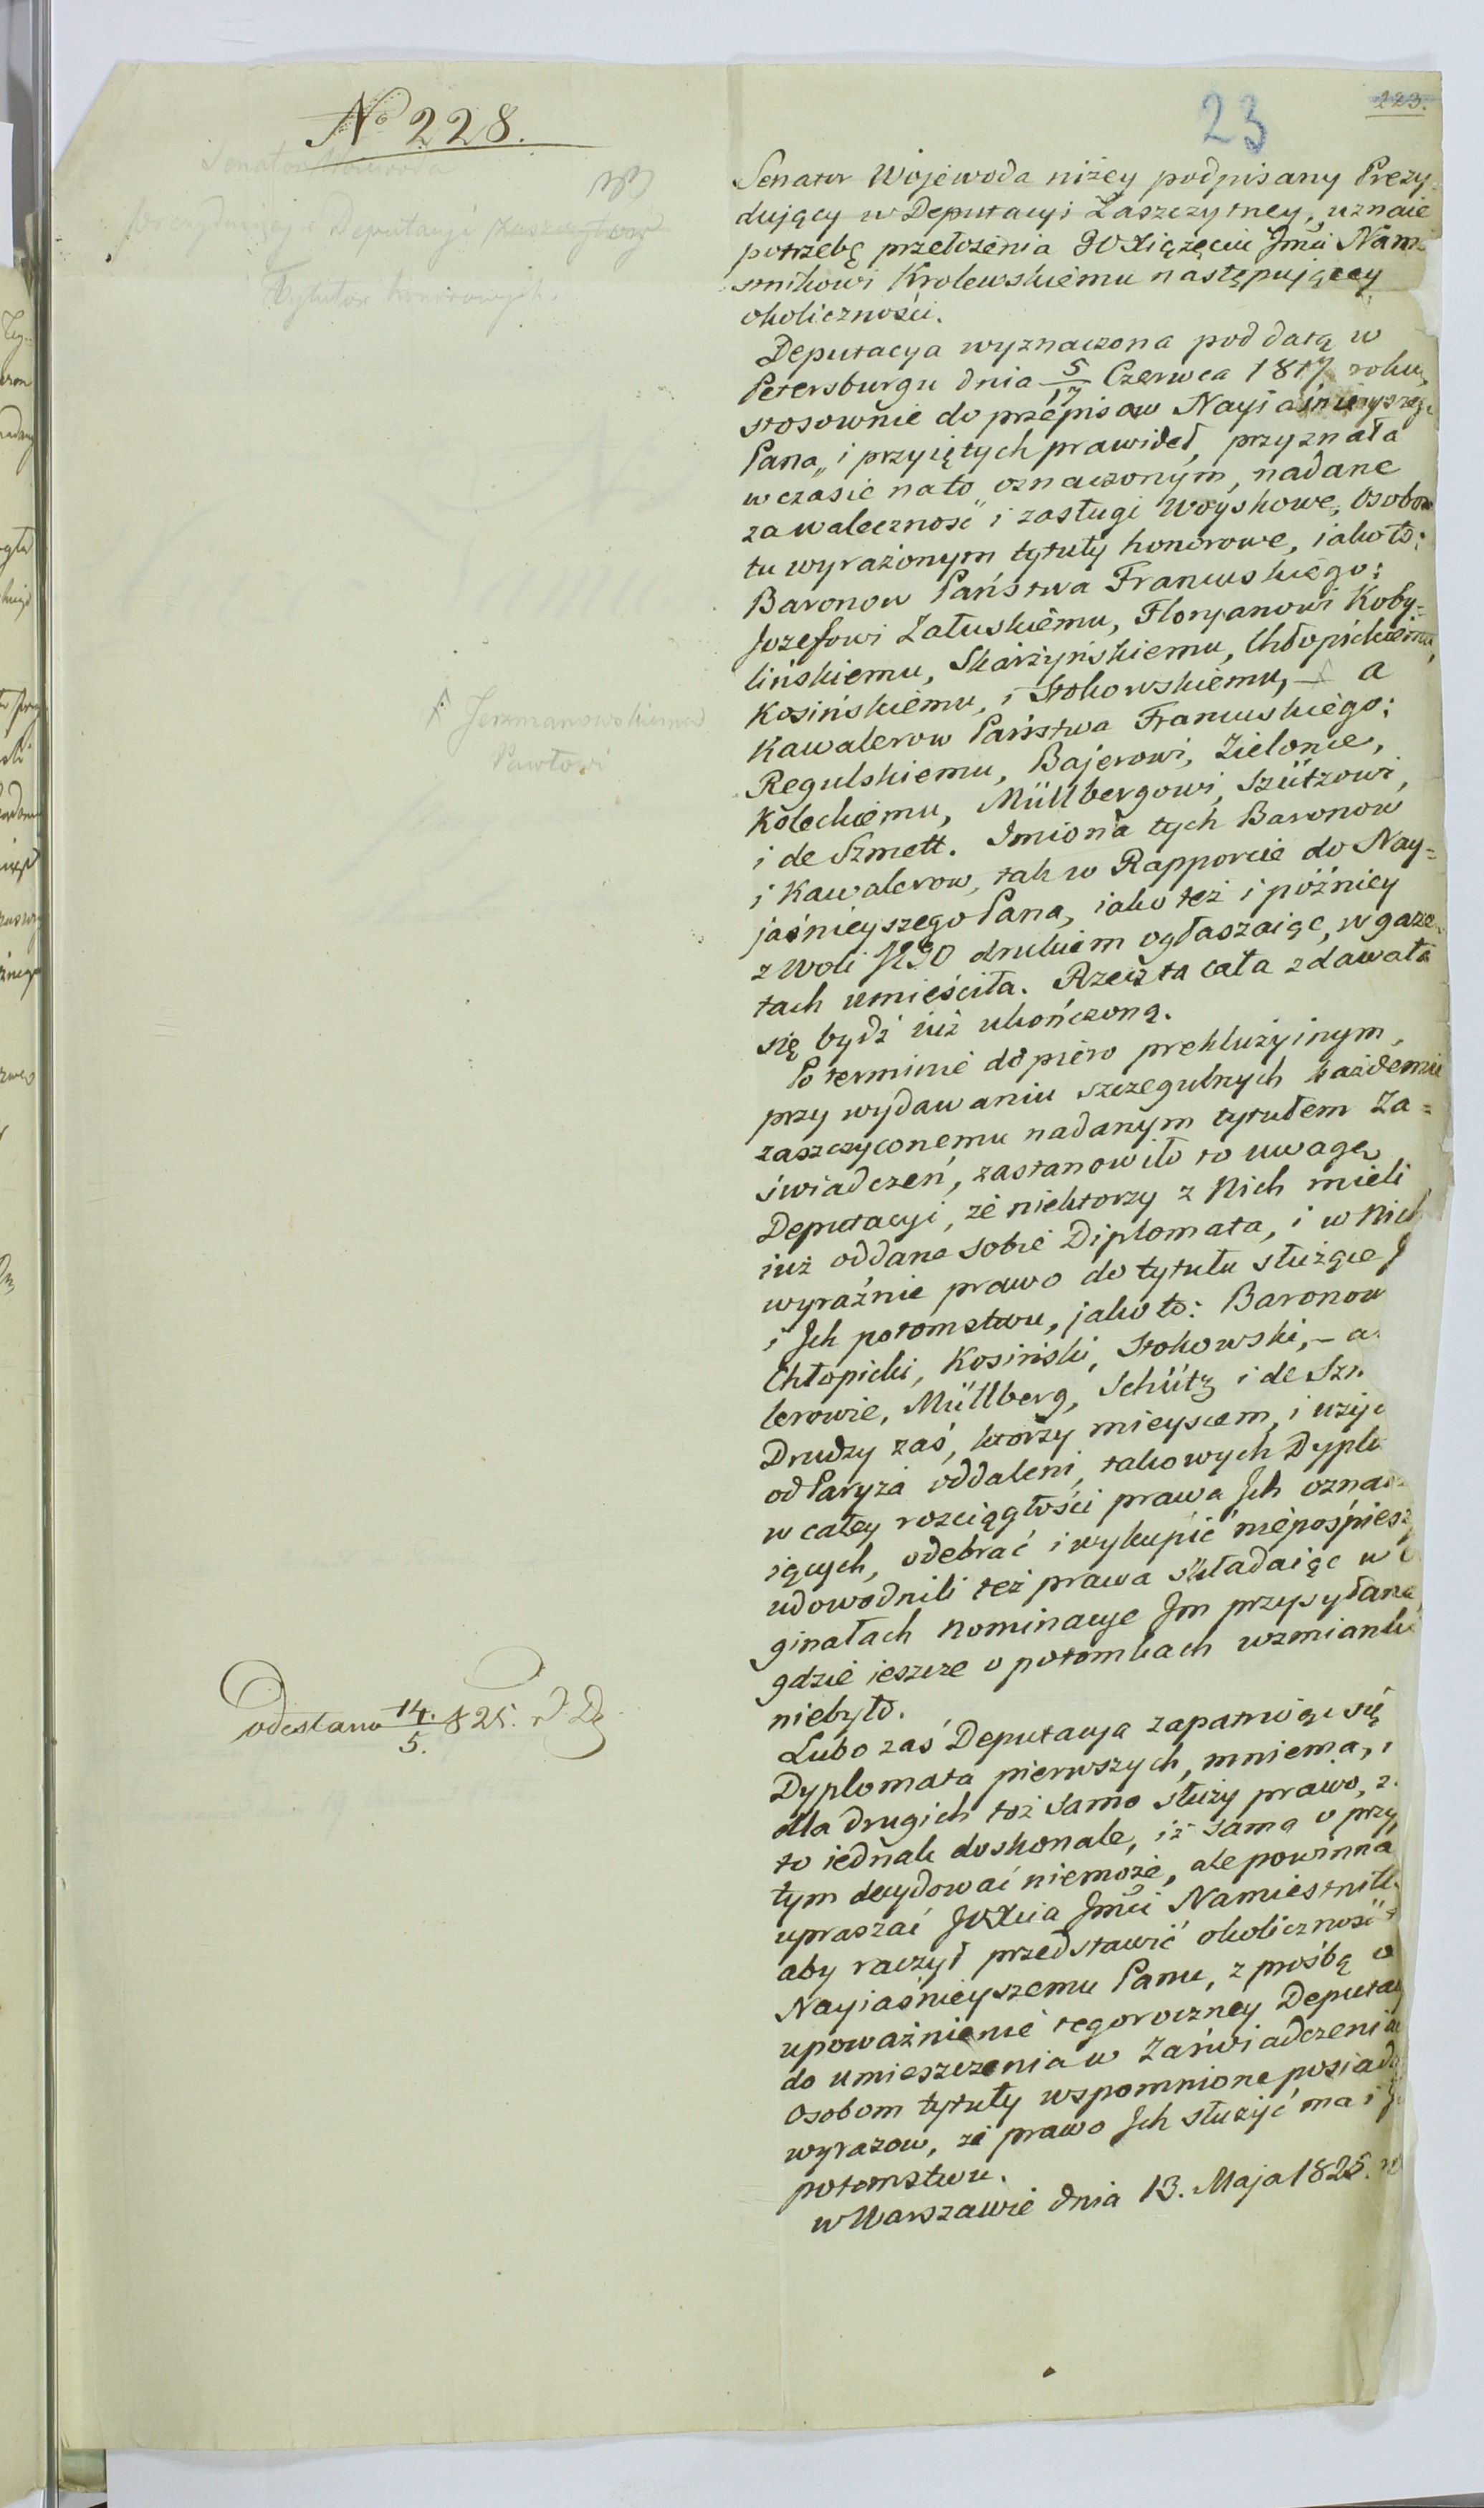 No 228.
Senator Woiewoda
Prezydujący Deputacyi zaszczytow
Tytułow honorowych.
23
223.
Senator Wojewoda niżey podpisany Prezy=
dujący w Deputacyi Zaszczytney, uznaie
potrzebę przełożenia JO Xiążęciu Jmći Namie
stnikowi Krolewskiemu następującey
okoliczności.
Deputacya wyznaczona pod datą w
Petersburgu dnia 5/17 Czerwca 1817 roku,
stosownie do przepisow Nayiaśnieyszego
Pana, i przyiętych prawideł, przyznała
w czasie nato oznaczonym, nadane
za waleczność i zasługi Woyskowe, Osobom
tu wyrażonym tytuły honorowe, iako to:
Baronow Państwa Francuskiego:
Jozefowi Załuskiemu, Floryanowi Koby=
lińskiemu, Skarżyńskiemu, Chłopickiemu,
Kosińskiemu, i Stokowskiemu, – a
† Jerzmanowskiemu
Pawłowi
Kawalerow Państwa Francuskiego:
Regulskiemu, Bajerowi, Zielonce,
Koleckiemu, Müllbergowi, Szützowi,
i de Szmett. Imiona tych Baronow
i Kawalerow, tak w Rapporcie do Nay=
jaśnieyszego Pana, iako też i późniey
z woli drukiem ogłaszaiąc, w gaze
tach umieściła. Rzecz ta cała zdawała
się bydź iuż ukończoną.
Po terminie dopiero prekluzyinym,
przy wydawaniu szczegulnych każdemu
zaszczyconemu nadanym tytułem Za=
świadczeń, zastanowiło to uwagę
Deputacyi, że niektorzy z Nich mieli
iuż oddane sobie Diplomata, i w Nich
wyraźnie prawo do tytułu służące J
i Ich potomstwu, jako to: Baronow
Chłopicki, Kosiński, Stokowski, – a
lerowie, Müllberg, Schütz i de Szm
Drudzy zaś, ktorzy mieyscem, i użyc
od Paryża oddaleni, takowych Dyplo
w całey rozciągłości prawa Ich oznac
iących, odebrać i wykupić niepośpiesz
udowodnili też prawa składaiąc w O
ginałach Nominacye Im przysyłane,
gdzie ieszcze o potomkach wzmianki
niebyło.
Lubo zaś Deputacya zapatruiąc się
Dyplomata pierwszych, mniema,
dla drugich toż samo służy prawo, z
to iednak doskonale, iż sama o przy
tym decydować niemoże, ale powinna
upraszać JOXcia Jmći Namiestnik
aby raczył przedstawić okoliczność t
Nayiaśnieyszemu Panu, z prośbą o
upoważnienie tegoroczney Deputacy
do umieszczenia w Zaświadczenia
Osobom tytuły wspomnione posiada
wyrazow, że prawo Ich służyć ma i J
potomstwu.
w Warszawie dnia 13. Maja 1825. r
odesłano 14./5. 825.